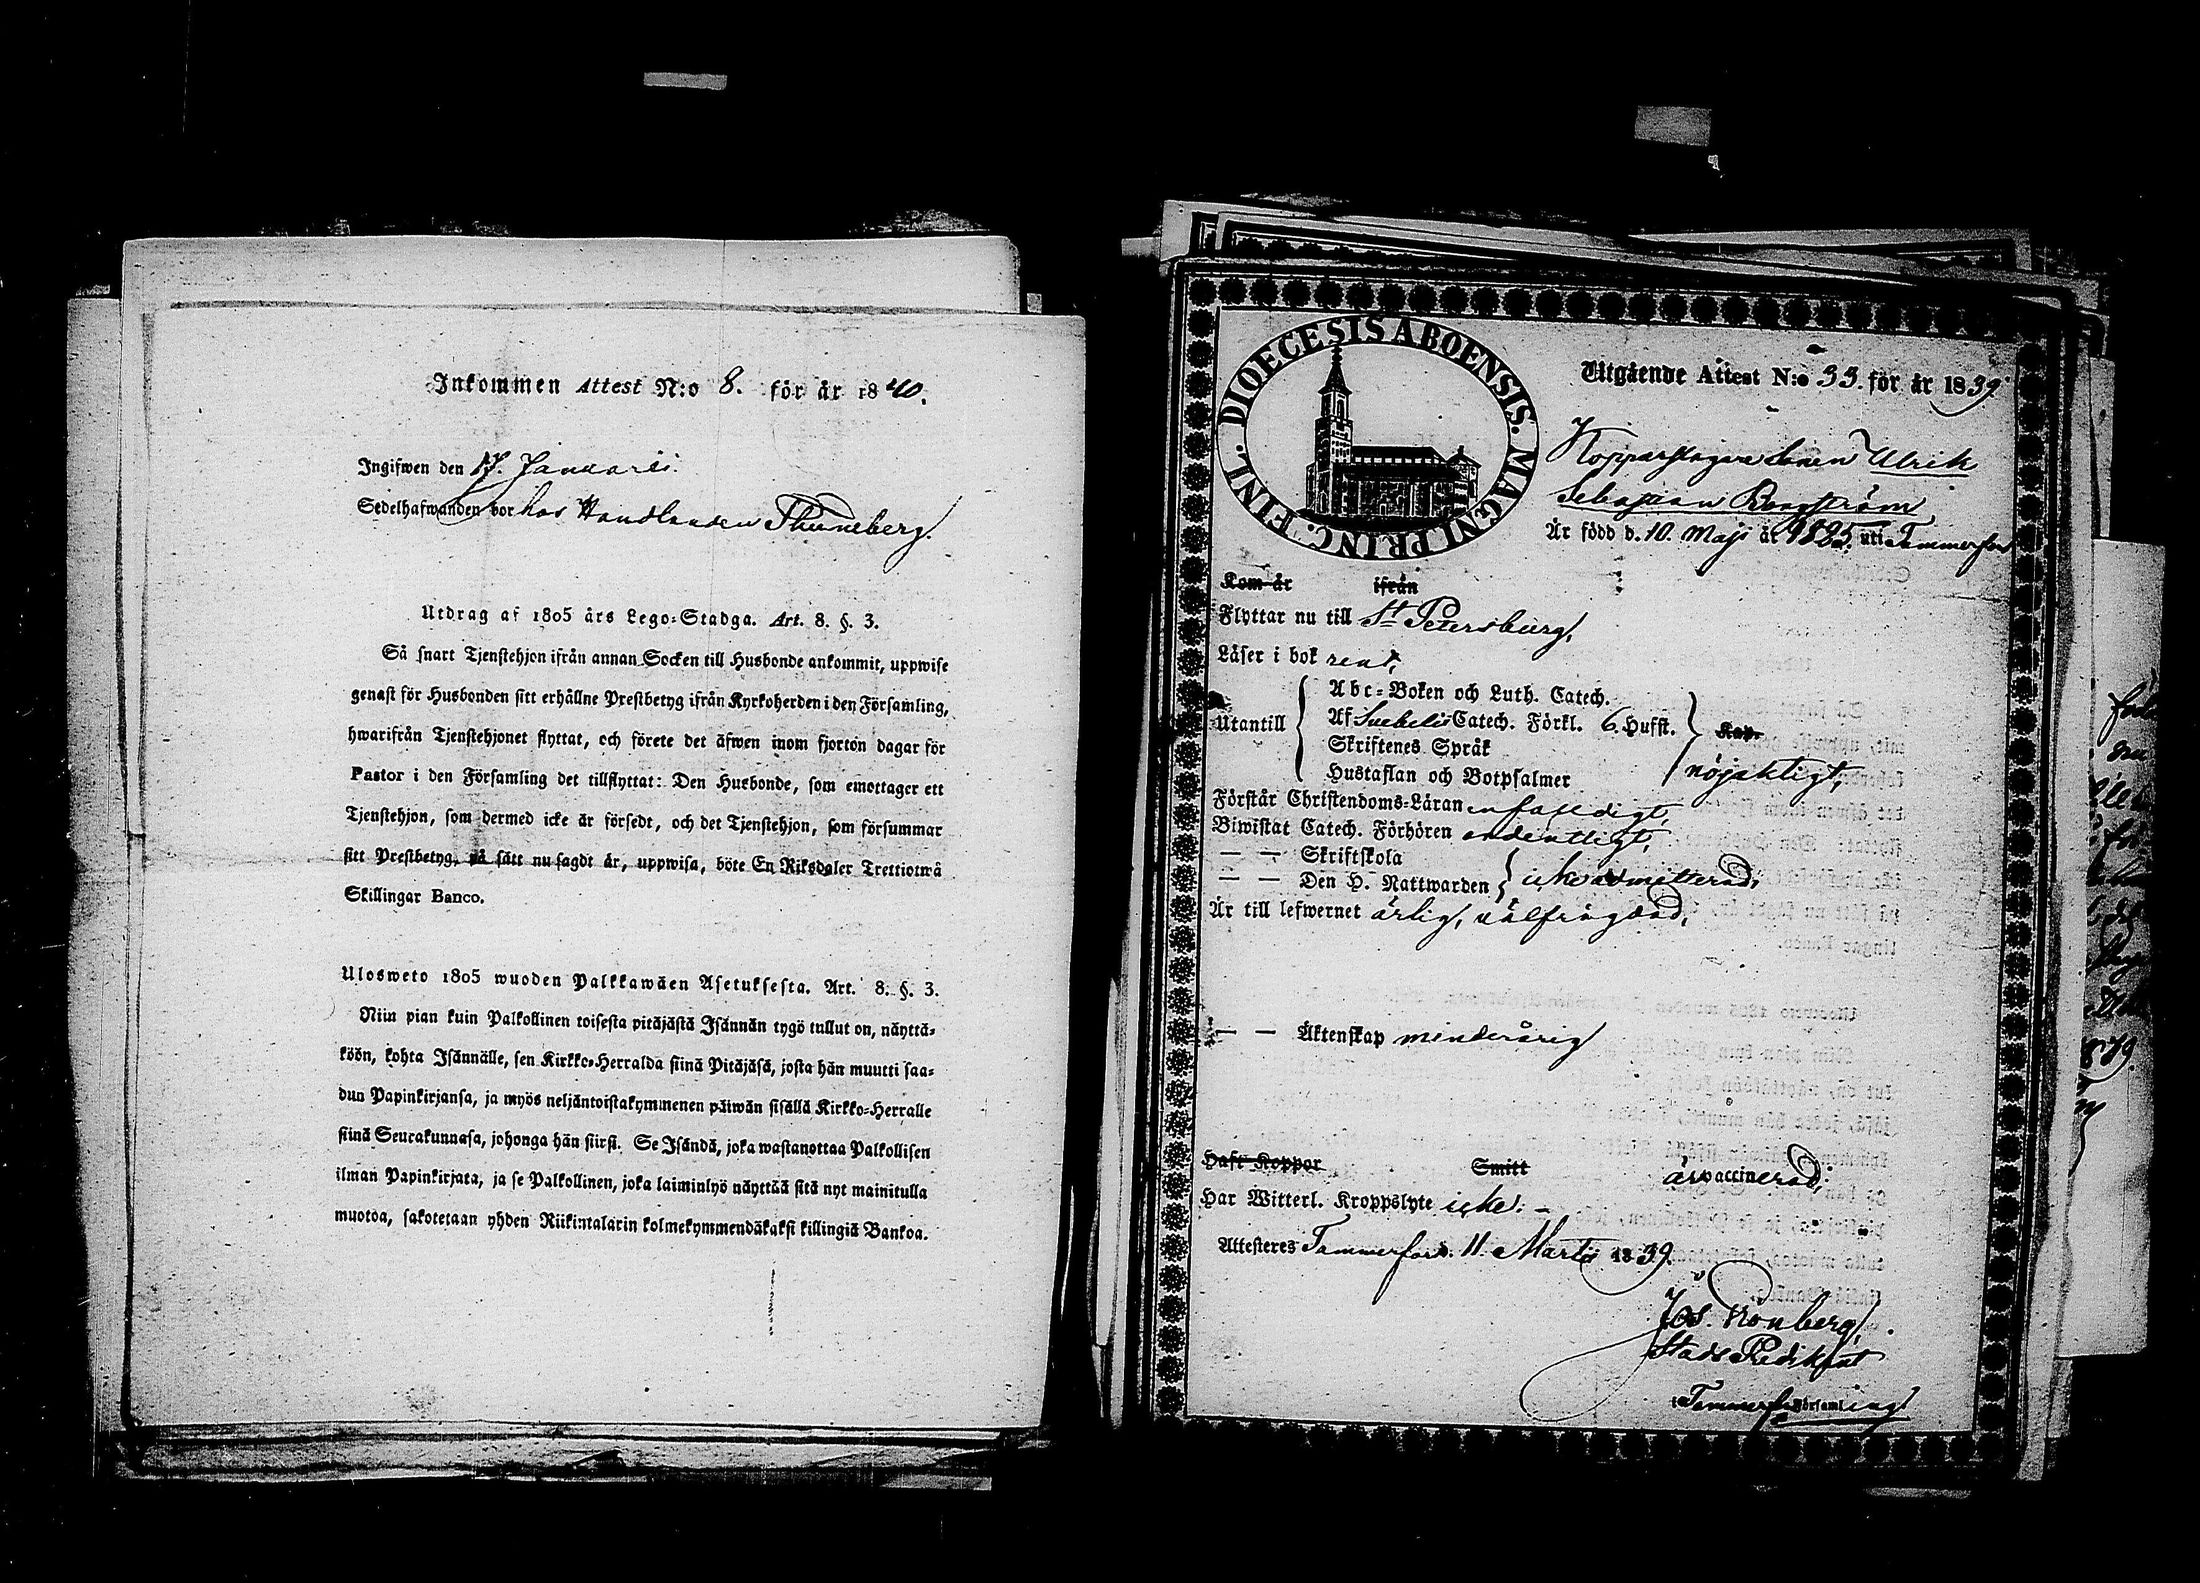 Inkommen Attest N:o 8. för år 1840.
Ingifwen den 17. Januarii.
Sedelhafwanden bor hos Handlanden Thuneberg.
Utdrag af 1805 års Lego-Stadga. Art. 8. §. 3.
Så snart Tjenstehjon ifrån annan Socken till Husbonde ankommit, uppwise
genast för Husbonden sitt erhållne Prestbetyg ifrån Kyrkoherden i den Församling,
hwarifrån Tjenstehjonet flyttat, och förete det äfwen inom fjorton dagar för
Pastor i den Församling det tillflyttat: Den Husbonde, som emottager ett
Tjenstehjon, som dermed icke är försedt, och det Tjenstehjon, som försummar
sitt Prestbetyg, på sätt nu sagdt är, uppwisa, böte En Riksdaler Trettiotwå
Skillingar Banco.
Ulosweto 1805 wuoden Palkkawäen Asetuksesta. Art. 8. §. 3.
Niin pian kuin Palkollinen toisesta pitäjästä Isännän tygö tullut on, näyttä-
köön, kohta Isännälle, sen Kirkko-Herralda siinä Pitäjäsä, josta hän muutti saa-
dun Papinkirjansa, ja myös neljäntoistakymmenen päiwän sisällä Kirkko-Herralle
siinä Seurakunnasa, johonga hän siirsi. Se Isändä, joka wastanottaa Palkollisen
ilman Papinkirjata, ja se Palkollinen, joka laiminlyö näyttää sitä nyt mainitulla
muotoa, sakotetaan yhden Riikintalarin kolmekymmendäkaksi killingiä Bankoa.
DIOECESIS ABOENSIS. MAGNI PRINC. FINL.
Utgående Attest N:o 33. för år 1839.
Kopparslagare Sonen Ulrik
Sebastian Bergström
Är född d. 10. Maji år 1825. uti Tammerfors
Kom år ifrån
Flyttar nu till St Petersburg,
Läser i bok rent,
Utantill
Abc-Boken och Luth. Catech.
Af Svebelii Catech. Förkl. 6. Hufst.
Kap.
Skriftenes Språk
Hustaflan och Botpsalmer
nöjaktigt,
Förstår Christendoms-Läran enfaldigt,
Biwistat Catech. Förhören ordentligt,
— — Skriftskola
— — Den H. Nattwarden icke admitterad,
Är till lefwernet ärlig, välfrägdad,
— — Äktenskap minderårig
Haft Koppor Smitt är vaccinerad;
Har Witterl. Kroppslyte icke. –
Attesteres Tammerfors. 11. Martii 1839.
Jos. Rönberg,
Stads Predikant
i Tammerfors Församling